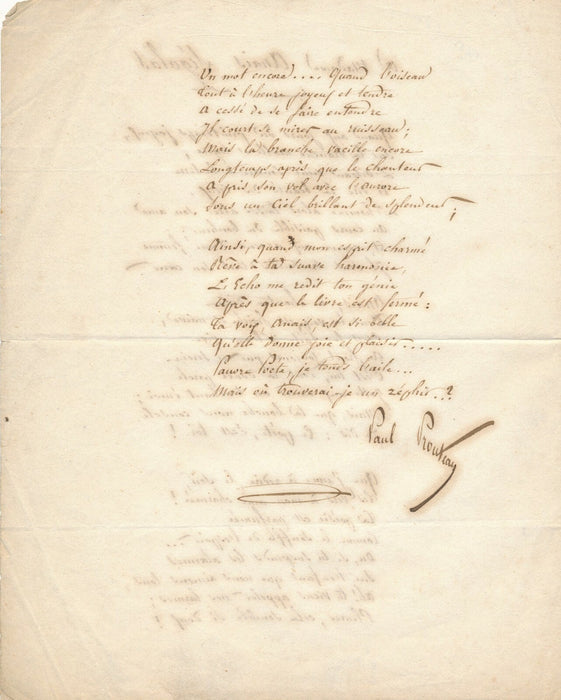 Un mot encore.... Quand l'oiseau
Tout à l'heure joyeux et tendre
a cessé de se faire entendre
Il court se mirer au ruisseau;
Mais la branche vacille encore
Longtemps après que le chanteur
a pris son vol avec l'aurore
Sous un Ciel brillant de splendeur;
Ainsi, quand mon esprit charmé
Rêve à ta suave harmonie,
L'Echo me redit ton génie
Après que le livre est fermé:
Ta voix, Anais, est si belle
Qu'elle donne joie et plaisir.....
Pauvre Poete, je tends l'aile...
Mais où trouverai-je un zéphir...?
Paul